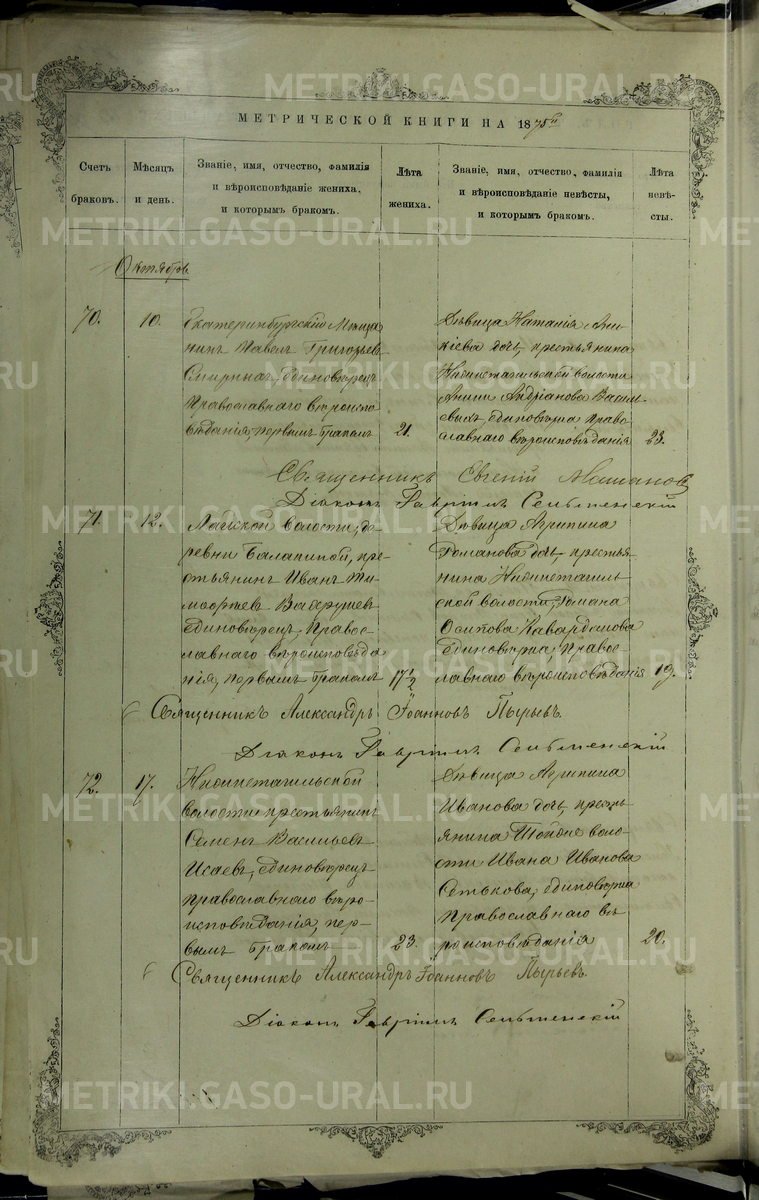 МЕТРИЧЕСКОЙ КНИГИ НА 1875й
Счетъ браковъ.
Мѣсяцъ и день.
Званіе, имя, отчество, фамилія
и вѣроисповѣданіе жениха,
и которымъ бракомъ.
Лѣта жениха.
Званіе, имя, отчество, фамилія
и вѣроисповѣданіе невѣсты,
и которымъ бракомъ.
Лѣта невѣ-
сты.
Октябрь
70.
10.
Екатеринбургскій Мѣща
нинъ Павелъ Григорьевъ
единовѣрецъ
Православнаго вѣроиспо
вѣданія, первымъ бракомъ
21.
Дѣвица Наталія Ани-
кіева дочь, крестьянина
Нижнетагильской волости
Аники Андріанова Василь-
евыхъ, единовѣрка право-
славнаго вѣроисповѣданія
23.
Священникъ Евгеній
Діаконъ Гавріилъ
71.
12.
Лайской волости, де-
ревни Балакиной, кре-
стьянинъ Иванъ Ти-
мофѣевъ Вахрушевъ
единовѣрецъ, Правос-
лавнаго вѣроисповѣда
нія, первымъ бракомъ
17 1/2
Дѣвица Агрипина
Романова дочь, крестья-
нина Нижнетагиль-
ской волости, Романа
Осипова Кавардакова
единовѣрка Правос-
лавнаго вѣроисповѣданія
19.
Священникъ Александръ Іоанновъ Пырьевъ.
Діаконъ Гавріилъ
72.
17.
Нижнетагильской
волости крестьянинъ
Семенъ Васильевъ
Исаевъ, единовѣрецъ
православнаго вѣро-
исповѣданія, пер-
вымъ бракомъ
23.
Дѣвица Агрипина
Иванова дочь, кресть-
янина воло-
сти Ивана Иванова
единовѣрка
Православнаго вѣ
роисповѣданія
20.
Священникъ Александръ Іоанновъ Пырьевъ.
Діаконъ Гавріилъ
METRIKI.GASO-URAL.RU